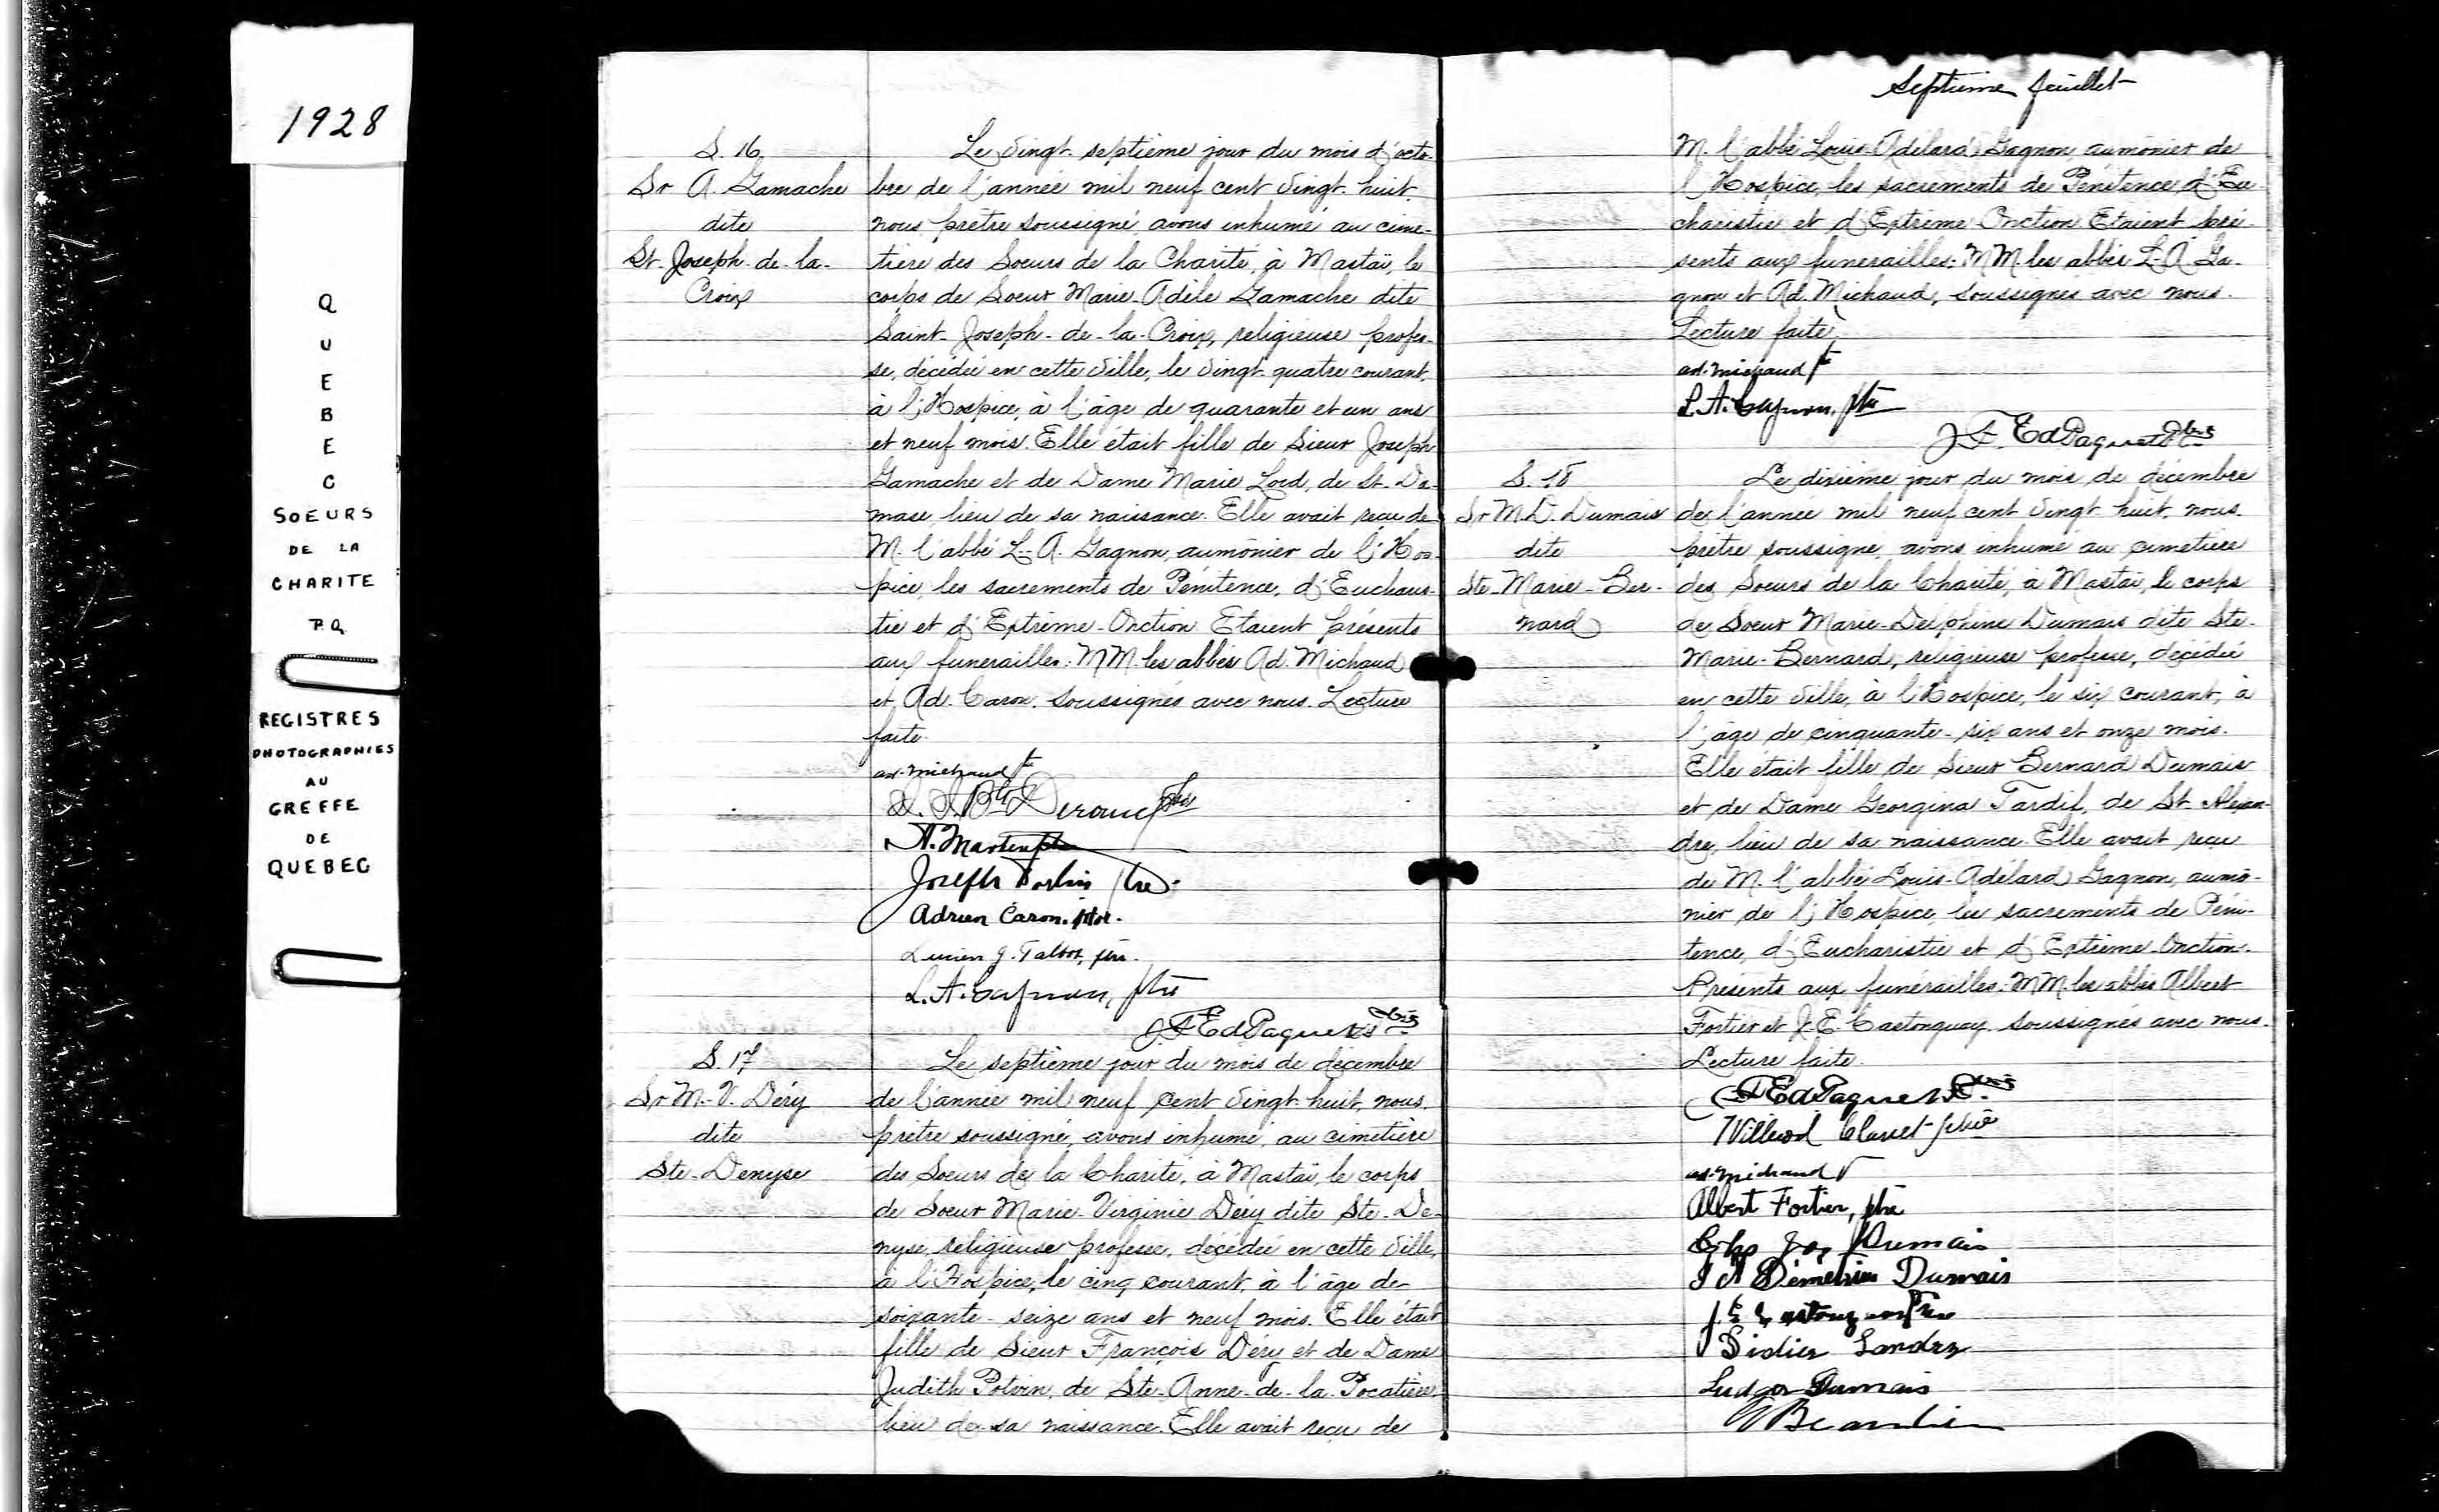 1928
Q
U
E
B
E
C
SOEURS
DE LA
CHARITE
P.Q.
REGISTRES
PHOTOGRAPHIES
AU
GREFFE
DE
QUEBEC
S. 16
Sr A. Gamache
dite
St-Joseph-de-la-
Croix
Le vingt-septième jour du mois d'octo-
bre de l'année mil neuf cent vingt-huit,
nous prêtre soussigné, avons inhumé au cime-
tière des Soeurs de la Charité, à Mastaï, le
corps de Soeur Marie-Adèle Gamache dite
Saint-Joseph-de-la-Croix, religieuse profes-
se, décédée en cette ville, le vingt-quatre courant,
à l'Hospice, à l'âge de quarante et un ans
et neuf mois. Elle était fille de Sieur Joseph
Gamache et de Dame Marie Lord, de St-Da-
mase, lieu de sa naissance. Elle avait reçu de
M. l'abbé L.-A. Gagnon, aumônier de l'Hos-
pice, les sacrements de Pénitence, d'Eucharis-
tie et d'Extrême-Onction. Etaient présents
aux funérailles: MM. les abbés Ad. Michaud
et Ad. Caron, soussignés avec nous. Lecture
faite.
ad. Michaud ptre
A. Martin ptre
Joseph Fortin ptre
Adrien Caron, ptre.
Lucien G. Talbot, ptre.
L. A. Gagnon, ptre
F. Ed Paquet Ptre
S. 17
Sr M.-V. Déry
dite
Ste-Denyse
Le septième jour du mois de décembre
de l'année mil neuf cent vingt-huit, nous,
prêtre soussigné, avons inhumé, au cimetière
des Soeurs de la Charité, à Mastaï, le corps
de Soeur Marie-Virginie Déry dite Ste-De-
nyse, religieuse professe, décédée en cette ville,
à l'Hospice, le cinq courant, à l'âge de
soixante-seize ans et neuf mois. Elle était
fille de Sieur François Déry et de Dame
Judith Potvin, de Ste-Anne-de-la-Pocatière
lieu de sa naissance. Elle avait reçu de
Septième feuillet
M. l'abbé Louis-Adélard Gagnon, aumônier de
l'Hospice, les sacrements de Pénitence d'Eu-
charistie et d'Extrême-Onction. Etaient pré-
sents aux funerailles: MM. les abbés L-A. Ga-
gnon et Ad. Michaud, soussignés avec nous.
Lecture faite,
ad. Michaud ptre
L. A. Gagnon, ptre
F. Ed Paquet Ptre
S. 18
Sr M.D. Dumais
dite
Ste-Marie-Ber-
nard
Le dixième jour du mois de décembre
de l'année mil neuf cent vingt-huit, nous,
prêtre soussigné, avons inhumé au cimetière
des Soeurs de la Charité, à Mastaï, le corps
de Soeur Marie-Delphine Dumais dite Ste-
Marie-Bernard, religieuse professe, décédée
en cette ville, à l'Hospice, le six courant, à
l'âge de cinquante-six ans et onze mois.
Elle était fille de Sieur Bernard Dumais
et de Dame Georgina Tardif, de St-Alexan-
dre, lieu de sa naissance. Elle avait reçu
de M. l'abbé Louis-Adélard Gagnon, aumô-
nier de l'Hospice, les sacrements de Péni-
tence, d'Eucharistie et d'Extrême-Onction.
Présents aux funérailles: MM. les abbés Albert
Fortier et J.-E. Castonguay soussignés avec nous.
Lecture faite.
F. Ed Paquet Ptre
ad. Michaud
Albert Fortier, ptre
Dumais
Démétrius Dumais
Didier Landry
Ludger Dumais
Beaulieu